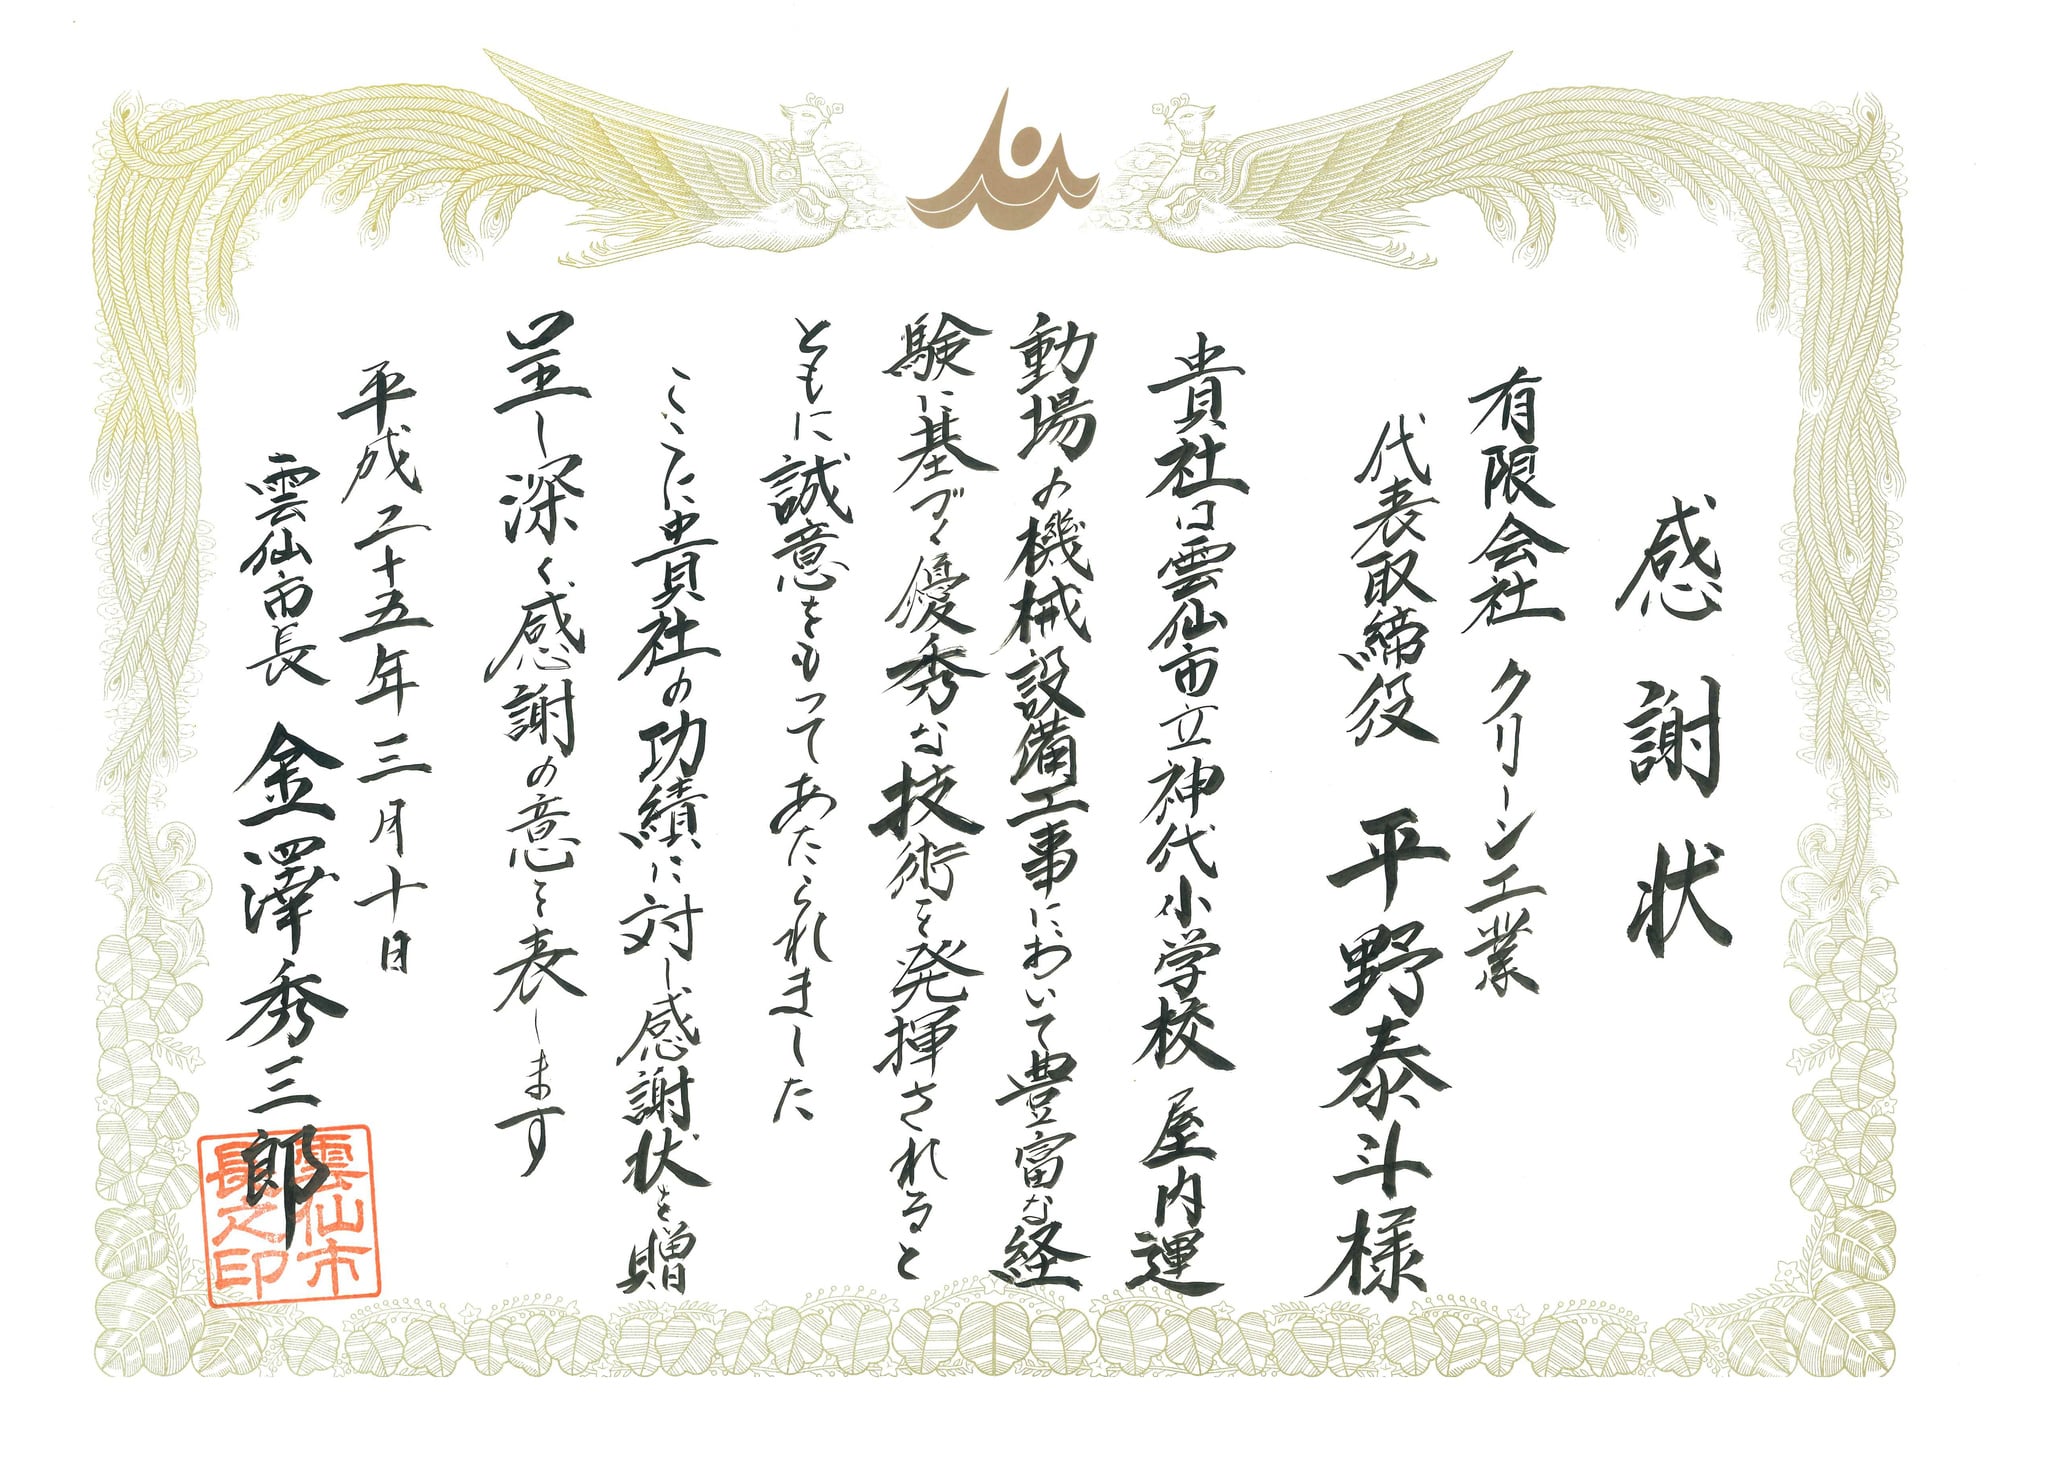 感謝状
有限会社 クリーン工業
代表取締役 平野泰斗様
貴社は雲仙市立神代小学校屋内運
動場の機械設備工事において豊富な経
験に基づく優秀な技術を発揮されると
ともに誠意をもってあたられました
ここに貴社の功績に対し感謝状を贈
呈し深く感謝の意を表します
平成二十五年三月十日
雲仙市長 金澤秀三郎
雲仙市
長之印